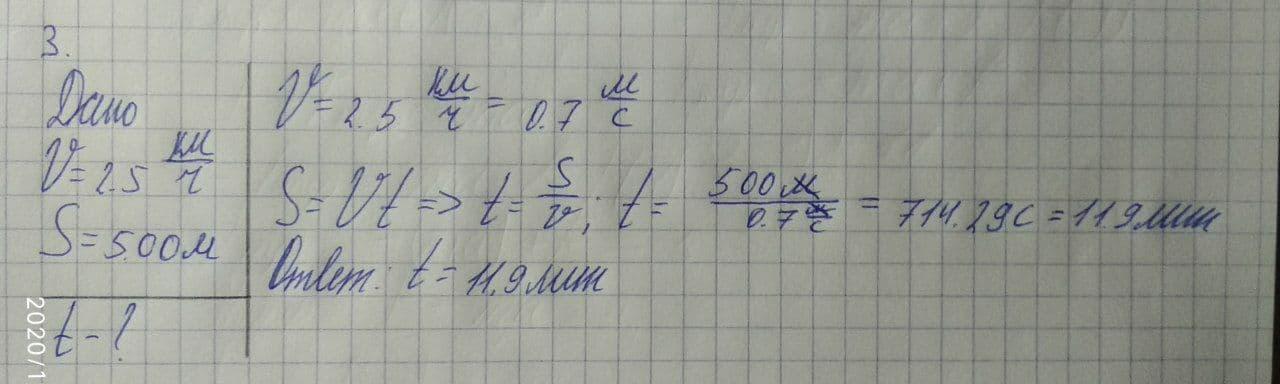 3.
Дано
V = 2.5 км/ч
S = 500м
t - ?
V = 2.5 км/ч = 0.7 м/с
S = Vt => t = S/v; t = 500м/0.7 м/с = 714.29с = 11.9мин
Ответ: t = 11.9мин
2020/1